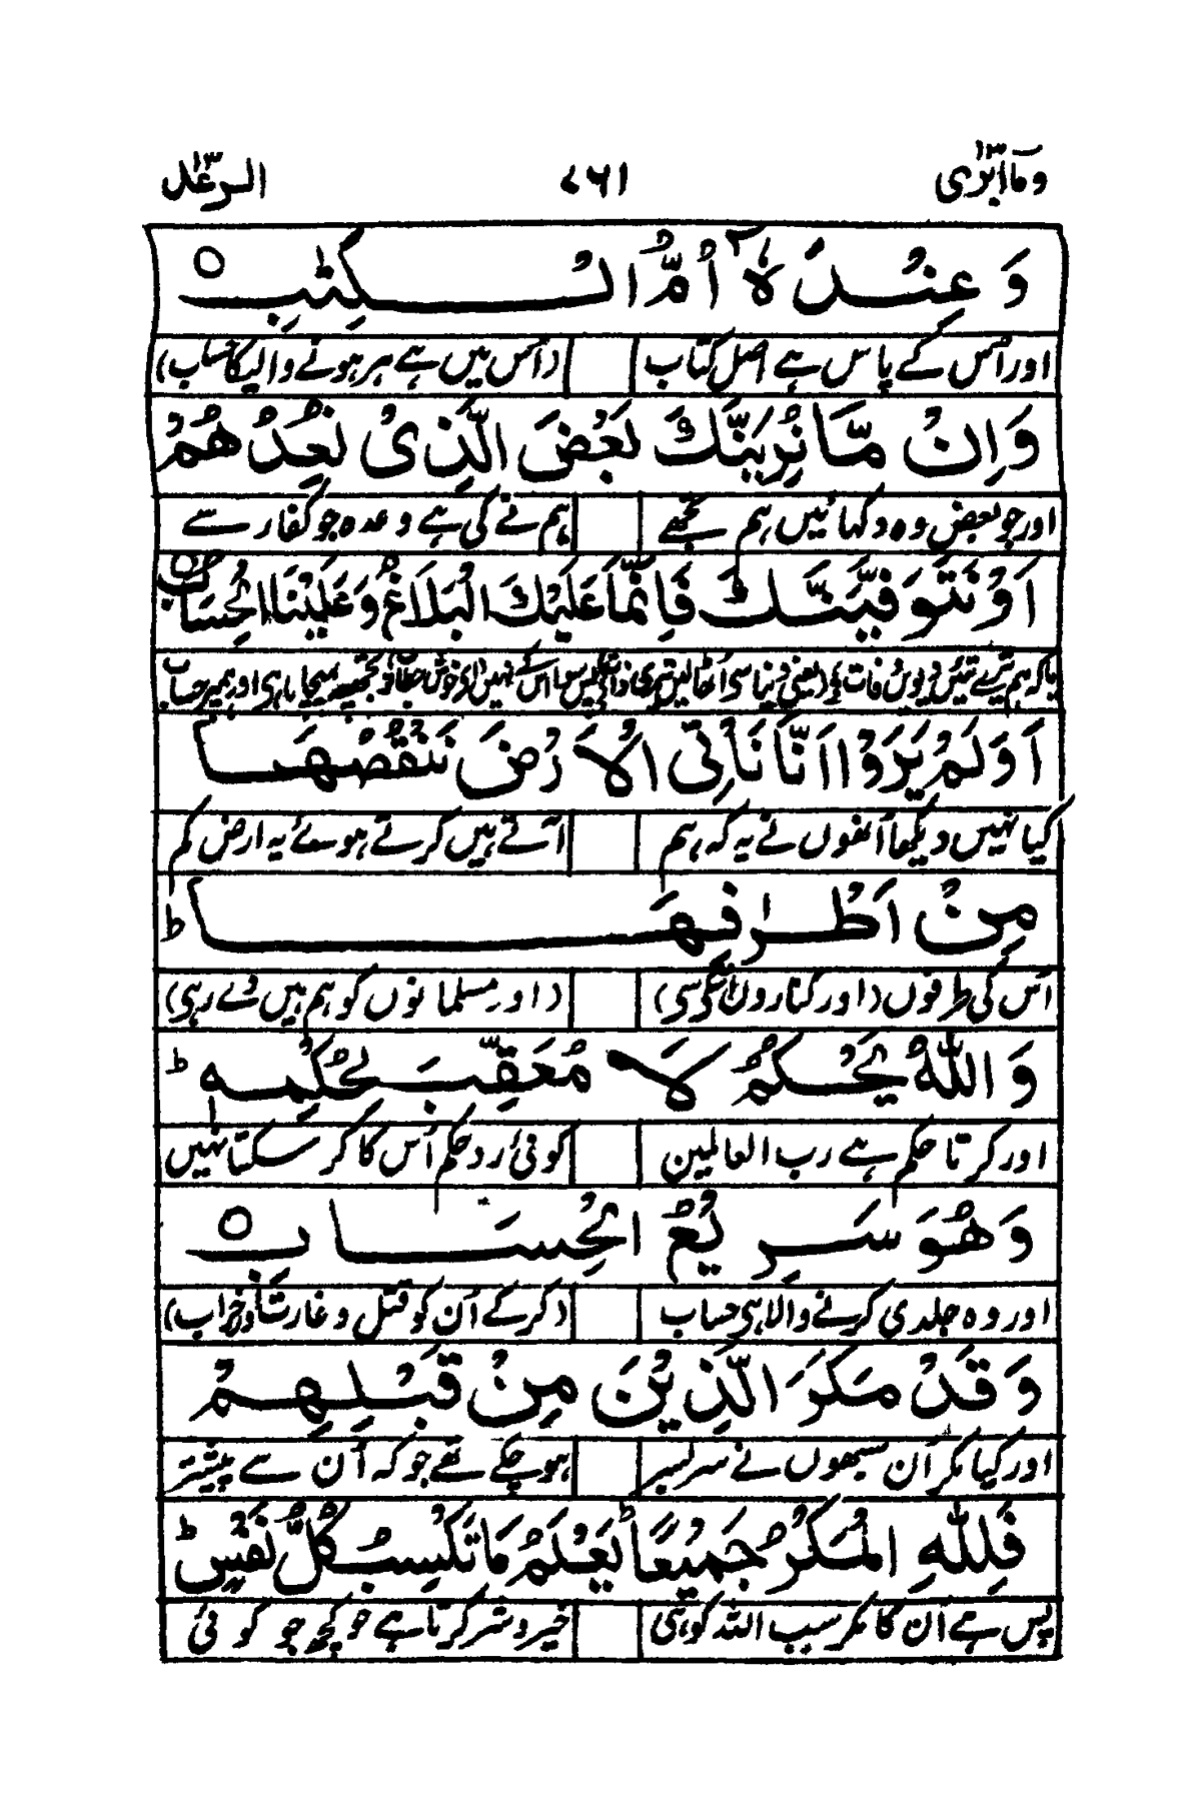 وما ابرئ ١٣ ٧٦١ الرعد ١٣
وَعِنْدَهٗۤ اُمُّ الْكِتٰبِ ○
اور اُس کے پاس ہے اصل کتاب (اُس میں ہے ہر ہونے والیکا حساب)
وَاِنْ مَّا نُرِيَنَّكَ بَعْضَ الَّذِىْ نَعِدُهُمْ
اور جو بعض وہ دکھائیں ہم تجھے ہم نے کی ہے وعدہ جو کفار سے
اَوْ نَتَوَفَّيَنَّكَ فَاِنَّمَا عَلَيْكَ الْبَلٰغُ وَعَلَيْنَا الْحِسَابُ ○
یا کہ ہم تیرے تئیں دیویں وفات (یعنی دنیا سی اٹھا لیں تیری ذات) اور ہمپر حساب
اَوَلَمْ يَرَوْا اَنَّا نَاْتِى الْاَرْضَ نَنْقُصُهَا
کیا نہیں دیکھا اُنھوں نے یہ کہ ہم آتے ہیں کرتے ہوئے یہ ارض کم
مِنْ اَطْرَافِهَا ؕ
اُس کی طرفوں (اور کناروں سی) (اور مسلمانوں کو ہم ہیں دے رہی)
وَاللّٰهُ يَحْكُمُ لَا مُعَقِّبَ لِحُكْمِهٖ ؕ
اور کرتا حکم ہے رب العالمین کوئی رد حکم اُس کا کر سکتا نہیں
وَهُوَ سَرِيْعُ الْحِسَابِ ○
اور وہ جلدی کرنے والا ہی حساب (کر کے اُن کو قتل و غارت اور خراب)
وَقَدْ مَكَرَ الَّذِيْنَ مِنْ قَبْلِهِمْ
اور کیا مکر اُن سبھوں نے سر بسر ہو چکے تھے جو کہ اُن سے پیشتر
فَلِلّٰهِ الْمَكْرُ جَمِيْعًا ؕ يَعْلَمُ مَا تَكْسِبُ كُلُّ نَفْسٍ ؕ
پس ہے اُن کا مکر سب اللہ کو ہی خیر و شر کرتا ہے جو کچھ جو کوئی